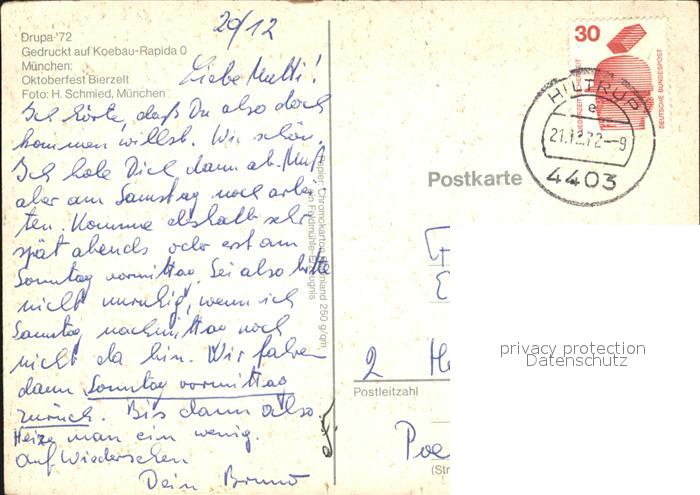 Drupa '72
Gedruckt auf Koebau-Rapida 0
München:
Oktoberfest Bierzelt
Foto: H. Schmied, München
20/12
Liebe Mutti!
Ich hörte, daß Du also doch
kommen willst. Wie schön.
Ich hole Dich dann ab. Muß
aber am Samstag noch arbei-
ten. Komme deshalb sehr
spät abends oder erst am
Sonntag vormittag. Sei also bitte
nicht unruhig, wenn ich
Samstag nachmittag noch
nicht da bin. Wir fahren
dann Sonntag vormittag
zurück. Bis dann also.
Heize man ein wenig.
Auf Wiedersehen
Dein Bruno
Papier: Chromokarton Rheinland 250 g/qm,
ein Feldmühle-Erzeugnis
30
DEUTSCHE BUNDESPOST
HILTRUP
e
21.12.72-9
4403
Postkarte
2
Postleitzahl
(Str
privacy protection
Datenschutz